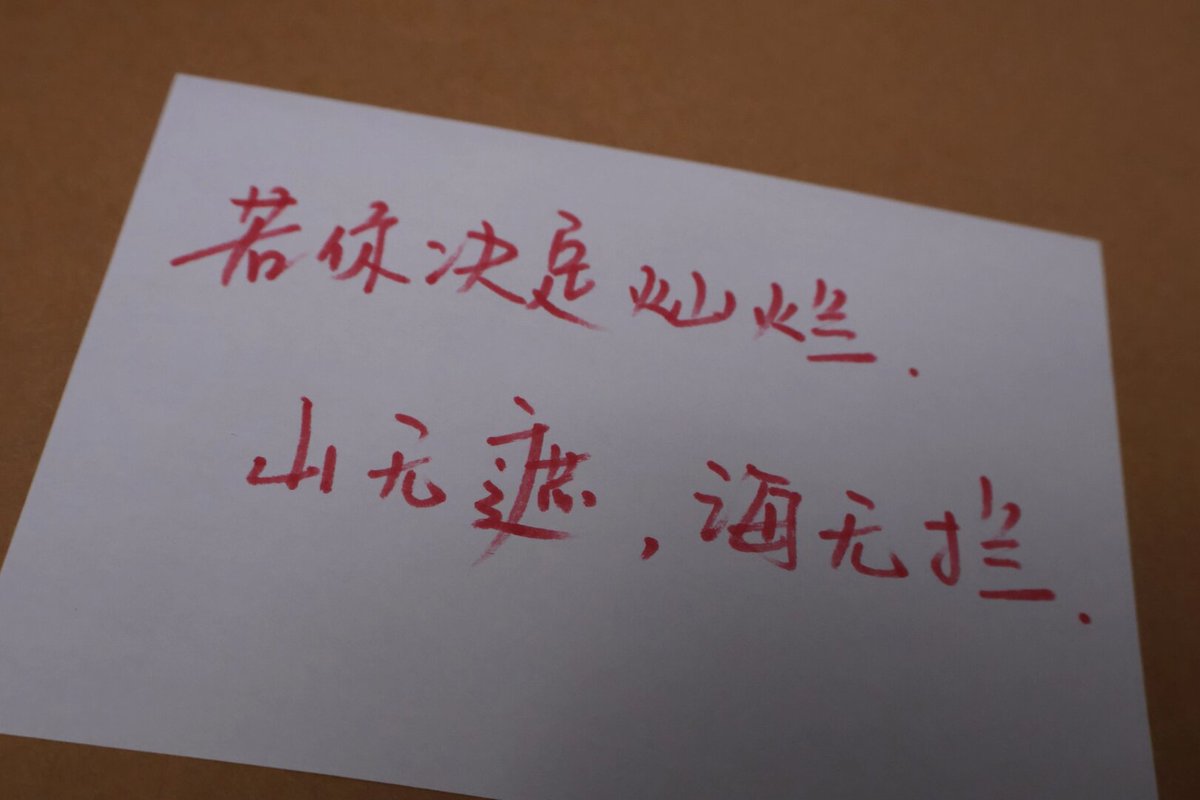 若你决定灿烂.
山无遮,海无拦.